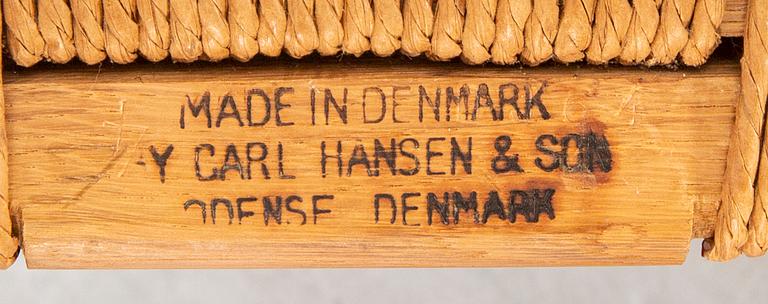 MADE IN DENMARK
BY CARL HANSEN & SON
ODENSE DENMARK